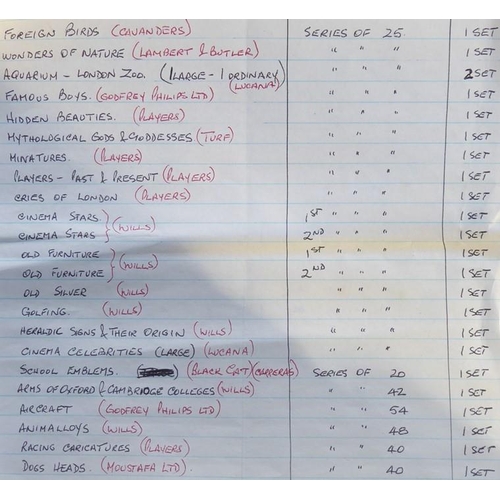 FOREIGN BIRDS (CAVANDERS) SERIES OF 25. 1 SET
WONDERS OF NATURE (LAMBERT & BUTLER) " " " 1 SET
AQUARIUM - LONDON ZOO. (1 LARGE - 1 ORDINARY) (LUCANA) " " " 2 SET
FAMOUS BOYS. (GODFREY PHILIPS LTD) " " " 1 SET
HIDDEN BEAUTIES. (PLAYERS) " " " 1 SET
MYTHOLOGICAL GODS & GODDESSES (TURF) " " " 1 SET
MINATURES. (PLAYERS) " " " 1 SET
PLAYERS - PAST & PRESENT (PLAYERS) " " " 1 SET
CRIES OF LONDON (PLAYERS) " " " 1 SET
CINEMA STARS } (WILLS) 1ST " " " 1 SET
CINEMA STARS } 2ND " " " 1 SET
OLD FURNITURE } (WILLS) 1ST " " " 1 SET
OLD FURNITURE } 2ND " " " 1 SET
OLD SILVER (WILLS) " " " 1 SET
GOLFING. (WILLS) " " " 1 SET
HERALDIC SIGNS & THEIR ORIGIN (WILLS) " " " 1 SET
CINEMA CELEBRITIES (LARGE) (LUCANA) " " " 1 SET
SCHOOL EMBLEMS. (BLACK CAT) (CARRERAS) SERIES OF 20 1 SET
ARMS OF OXFORD & CAMBRIDGE COLLEGES (WILLS) " " 42 1 SET
AIRCRAFT (GODFREY PHILIPS LTD) " " 54 1 SET
ANIMALLOYS (WILLS) " " 48 1 SET
RACING CARICATURES (PLAYERS) " " 40 1 SET
DOGS HEADS. (MOUSTAFA LTD). " " 40 1 SET